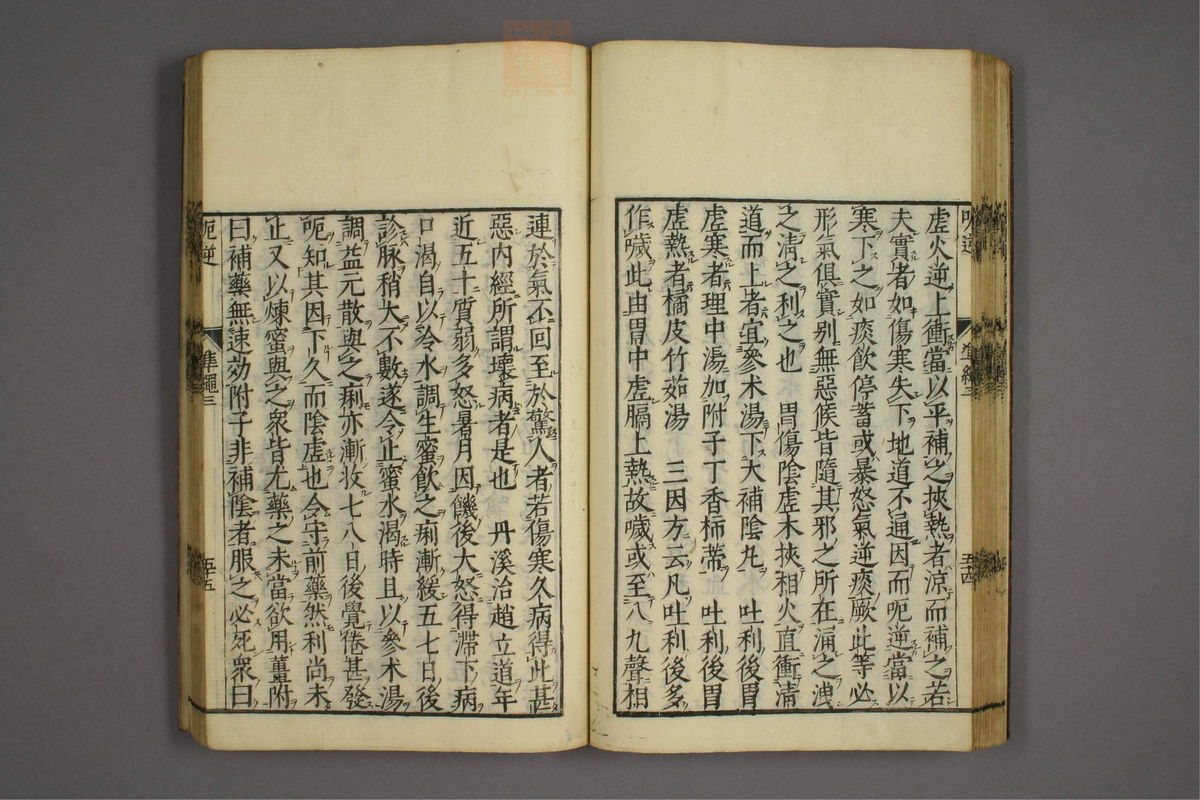 呃逆
準繩三
五十四
虛火逆上衝當以平補之挾熱者涼而補之若
夫實者如傷寒失下地道不通因而呃逆當以
寒下之如痰飲停蓄或暴怒氣逆痰厥此等必
形氣俱實别無惡候皆隨其邪之所在涌之洩
之淸之利之也 胃傷陰虛木挾相火直衝淸
道而上者宜參术湯下大補陰丸 吐利後胃
虛寒者理中湯加附子丁香柿蒂 吐利後胃
虛熱者橘皮竹茹湯 三因方云凡吐利後多
作噦此由胃中虛膈上熱故噦或至八九聲相
連於氣不回至於驚人者若傷寒久病得此甚
惡内經所謂壞病者是也 丹溪治趙立道年
近五十質弱多怒暑月因饑後大怒得滯下病
口渴自以冷水調生蜜飮之痢漸緩五七日後
診脉稍大不數遂令止蜜水渴時且以參术湯
調益元散與之痢亦漸收七八日後覺倦甚發
呃知其因下久而陰虛也令守前藥然利尚未
止又以煉蜜與之衆皆尤藥之未當欲用薑附
曰補藥無速効附子非補陰者服之必死衆曰
呃逆
準繩三
五十五